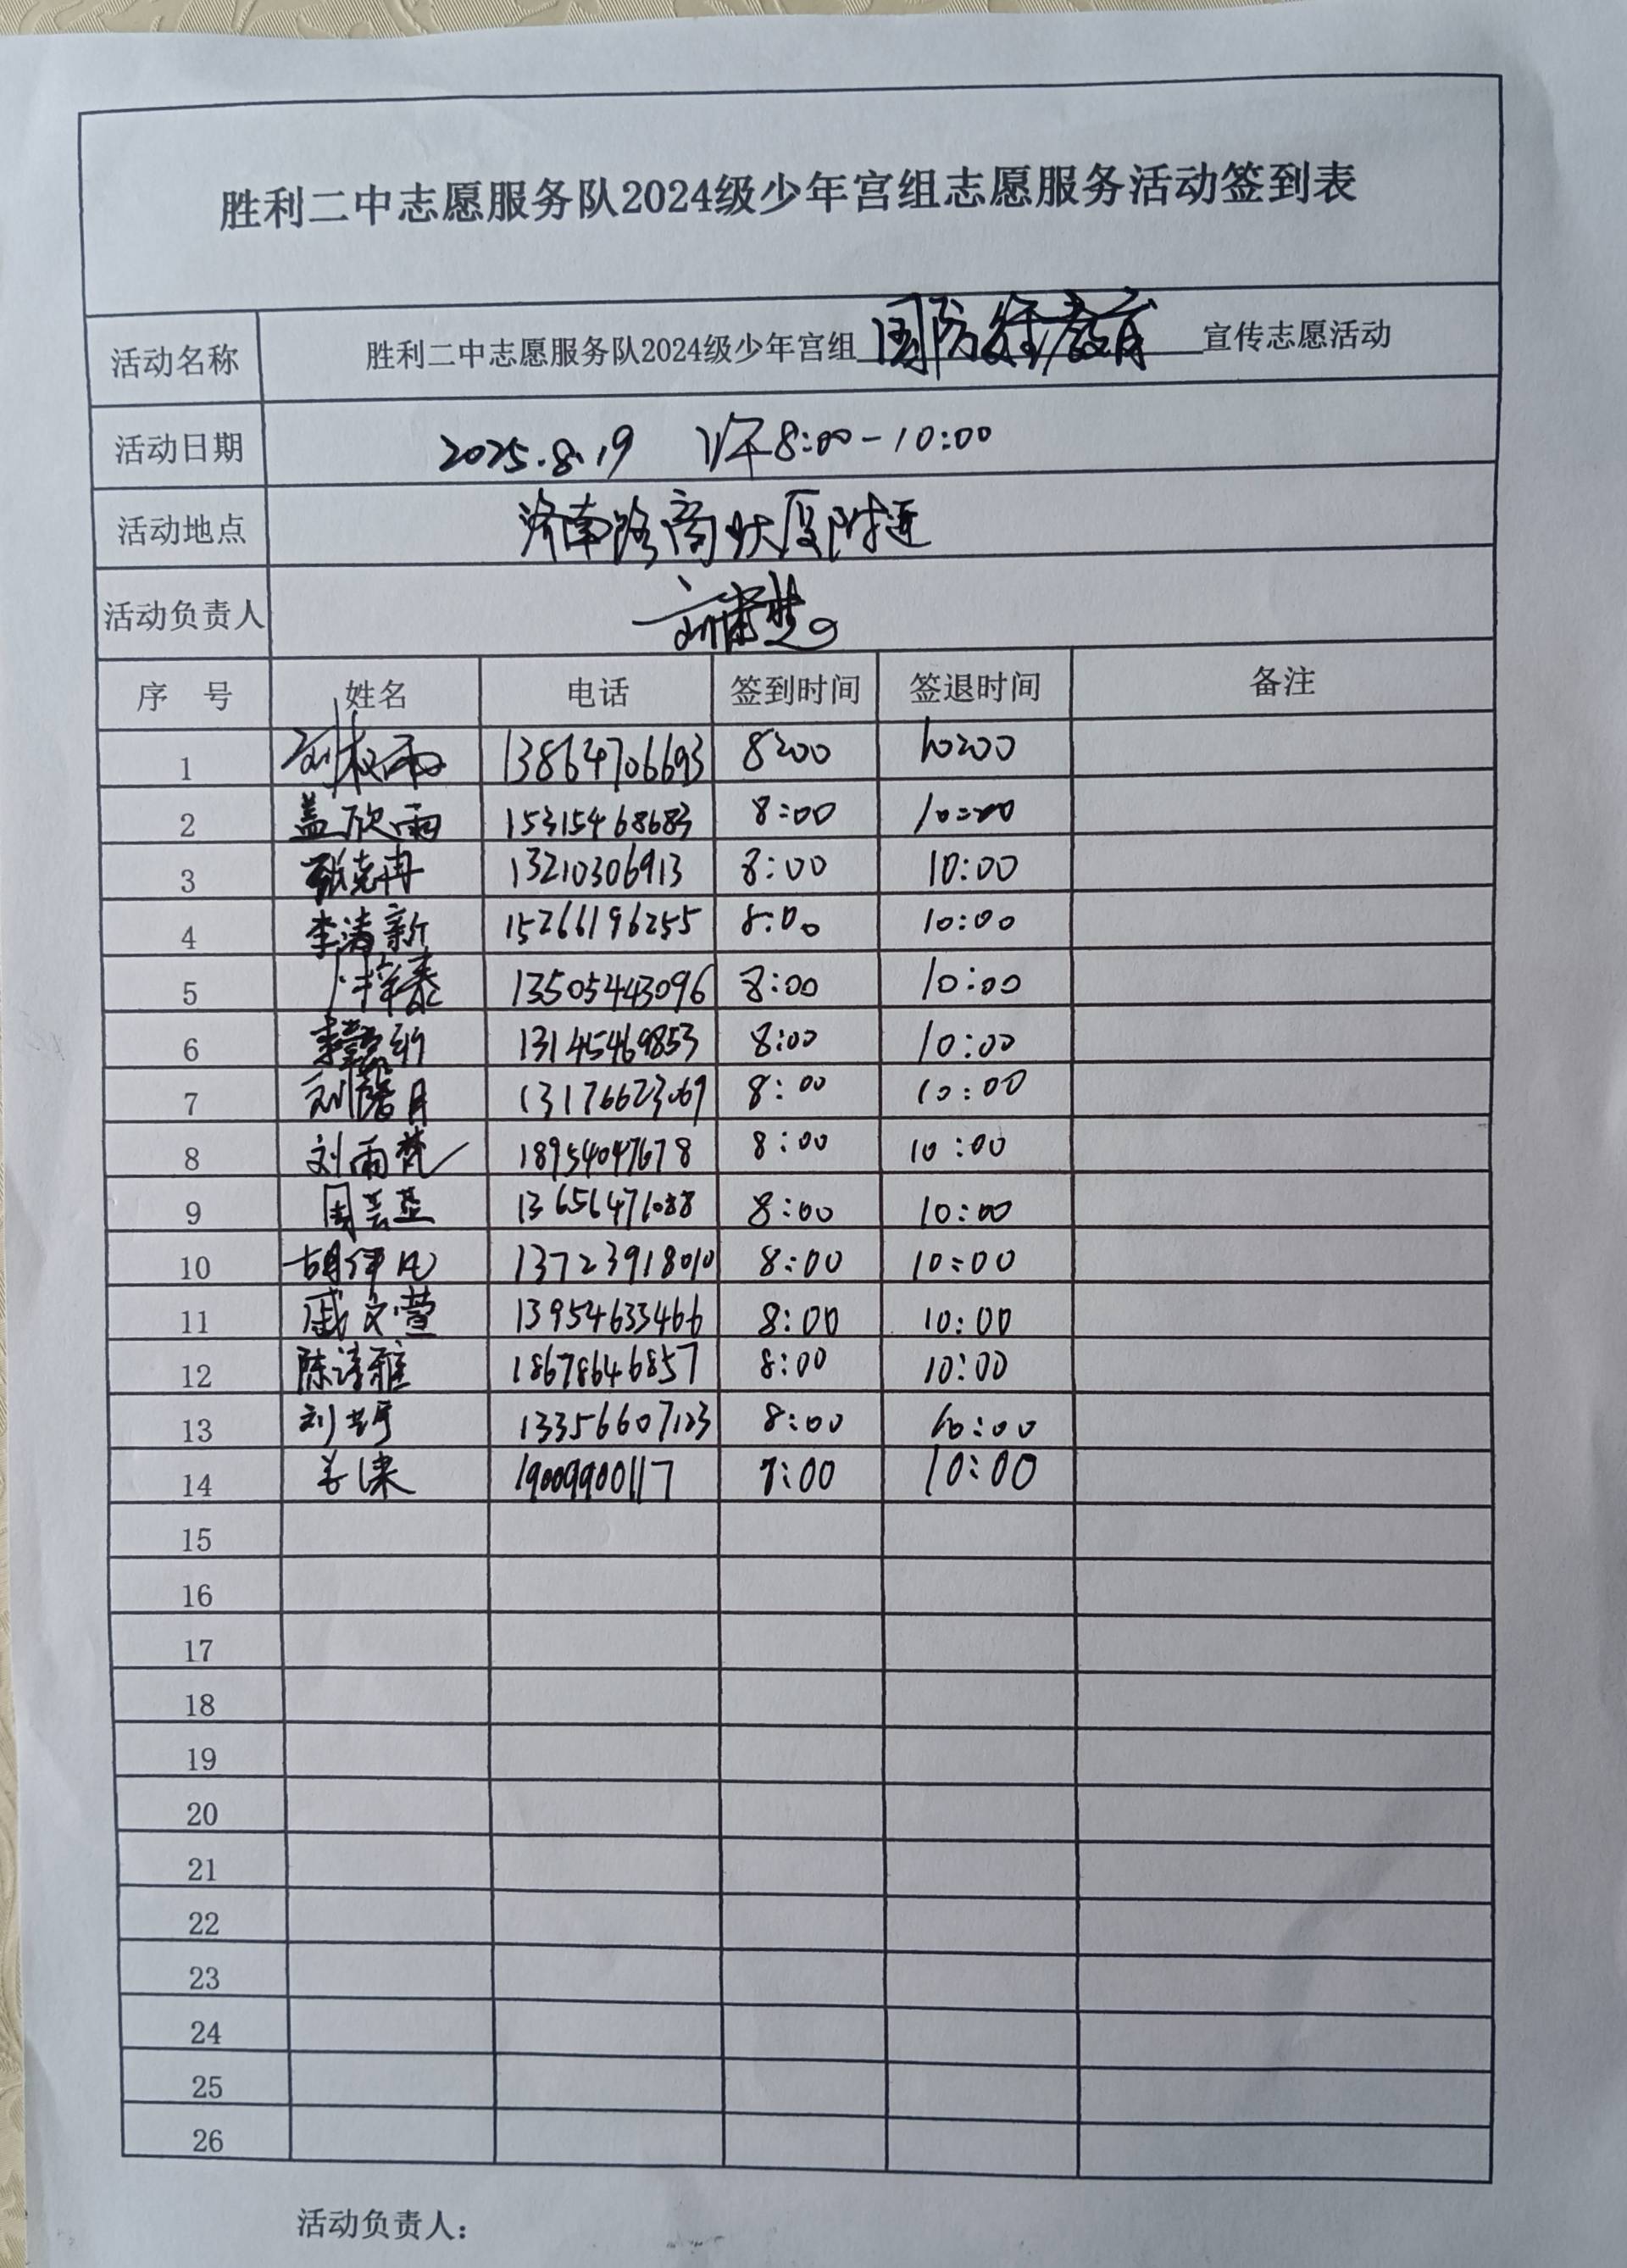 胜利二中志愿服务队2024级少年宫组志愿服务活动签到表
活动名称 胜利二中志愿服务队2024级少年宫组 国防 教育 宣传志愿活动
活动日期 2025.8.19 午8:00-10:00
活动地点 济南路商业大厦附近
活动负责人
序 号 姓名 电话 签到时间 签退时间 备注
1 13864706693 8:00 10:00
2 盖欣雨 15315468683 8:00 10:00
3 张克冉 13210306913 8:00 10:00
4 李涛新 15266196255 8:00 10:00
5 13505443096 8:00 10:00
6 13145469853 8:00 10:00
7 刘馨月 13176623069 8:00 10:00
8 刘雨梵 18954047678 8:00 10:00
9 13656471088 8:00 10:00
10 胡伊凡 13723918010 8:00 10:00
11 戚文萱 13954633466 8:00 10:00
12 陈诗雅 18678646857 8:00 10:00
13 13356607123 8:00 10:00
14 19009900117 10:00
15
16
17
18
19
20
21
22
23
24
25
26
活动负责人：